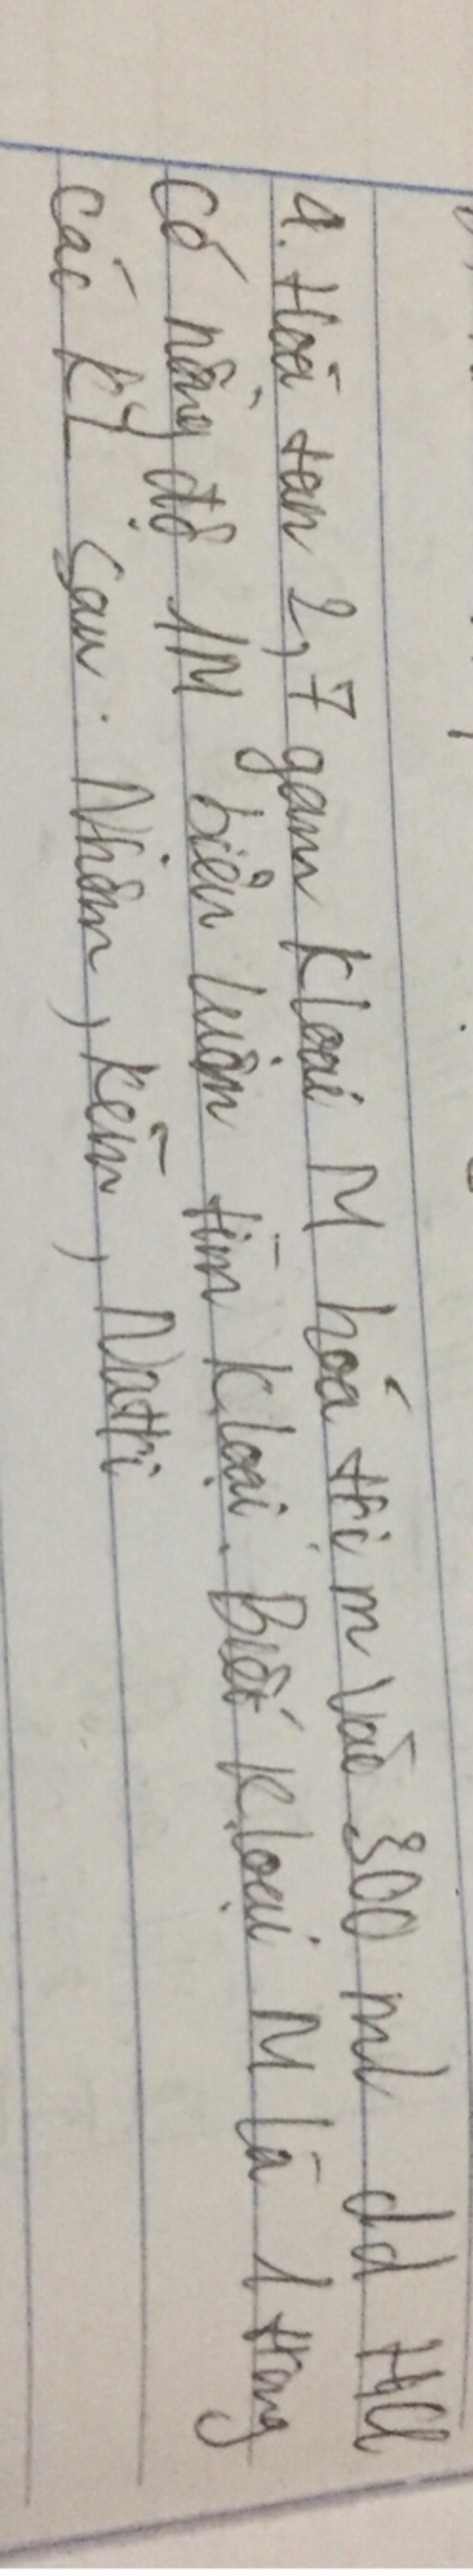 4. Hoà tan 2,7 gam kloại M hoá trị m vào 300 ml dd HCl
có nồng độ 1M biện luận tìm k.loại. Biết k.loại M là 1 trong
các kl sau: Nhôm, kẽm, Natri